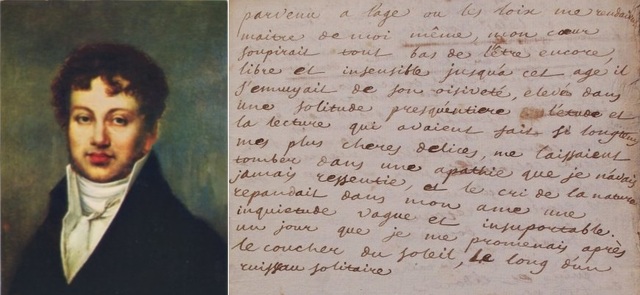 parvenu a l'age ou les loix me rendaient
maitre de moi même, mon cœur
soupirait tout bas de l'être encore,
libre et insensible jusqua cet age il
s'ennuyait de son oisiveté, elevé dans
une solitude presqu'entiere l'etude et
la lecture qui avaient fait si longtems
mes plus cheres delices, me laissaient
tomber dans une apathie que je n'avais
jamais ressentie, et le cri de la nature
repandait dans mon ame une
inquietude vague et insuportable.
un jour que je me promenais après
le coucher du soleil, le long d'un
ruisseau solitaire